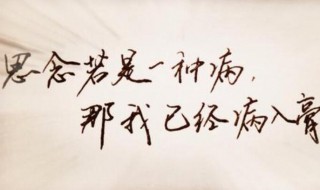 思念若是一种病，
那我已经病入膏